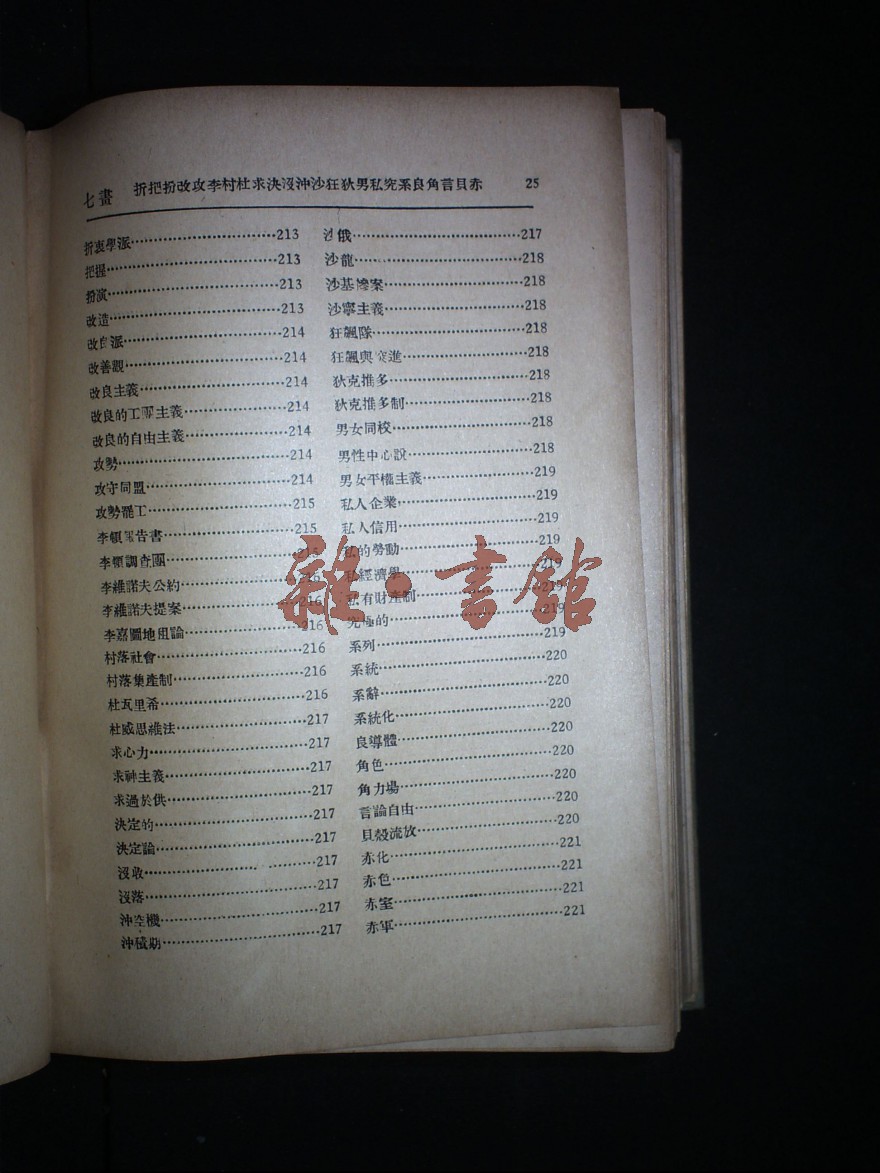 七畫 折把扮改攻李村杜求決沒沖沙狂狄男私究系良角言貝赤 25
折衷學派 213
把握 213
扮演 213
改造 213
改自派 214
改善觀 214
改良主義 214
改良的工團主義 214
改良的自由主義 214
攻勢 214
攻守同盟 214
攻勢罷工 215
李頓報告書 215
李頓調查團 215
李維諾夫公約 216
李維諾夫提案 216
李嘉圖地租論 216
村落社會 216
村落集產制 216
杜瓦里希 216
杜威思維法 217
求心力 217
求神主義 217
求過於供 217
決定的 217
決定論 217
沒收 217
沒落 217
沖空機 217
沖積期 217
沙俄 217
沙龍 218
沙基慘案 218
沙寧主義 218
狂飆隊 218
狂飆與突進 218
狄克推多 218
狄克推多制 218
男女同校 218
男性中心說 218
男女平權主義 219
私人企業 219
私人信用 219
私的勞動 219
私經濟學 219
私有財產制 219
究極的 219
系列 219
系統 220
系辭 220
系統化 220
良導體 220
角色 220
角力場 220
言論自由 220
貝殼流放 220
赤化 221
赤色 221
赤室 221
赤軍 221
雜·書館